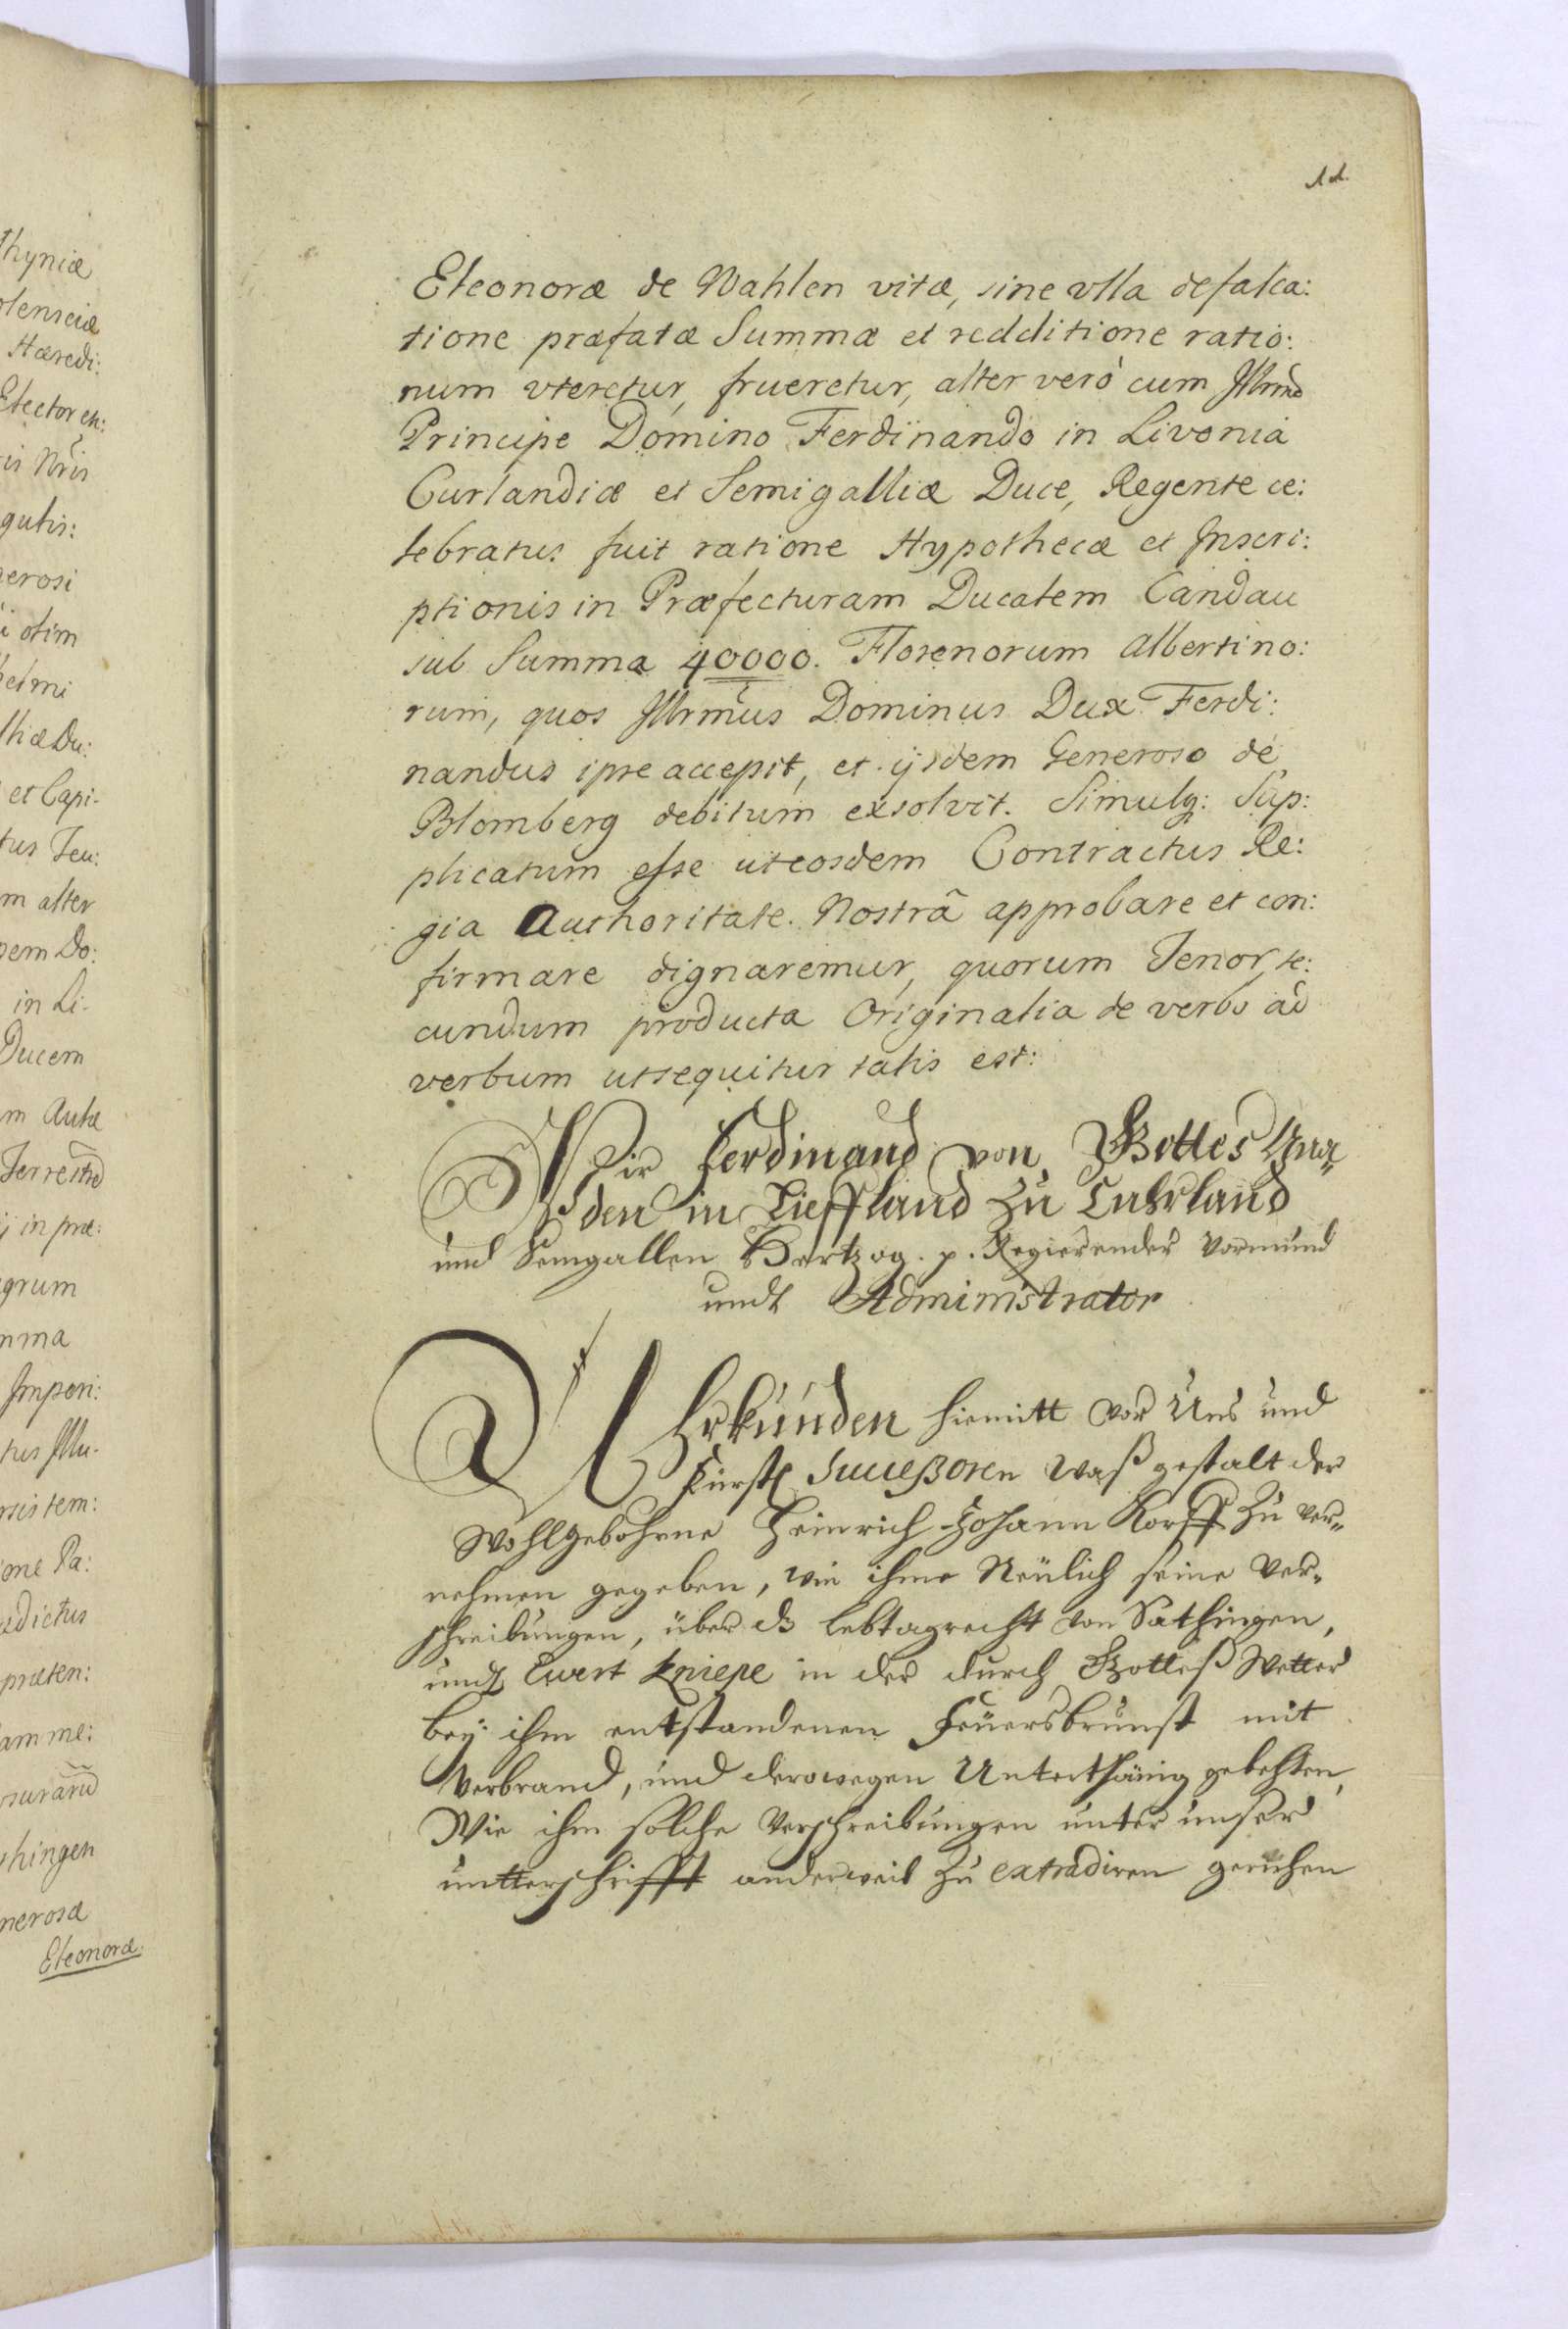 thyniæ
olensciæ
Hæredi:
Elector etc:
ris Nrĩs
gulis:
nerosi
i olim
helmi
lliæ Du:
et Capi-
tus Feu:
m alter
pem Do:
in Li-
Ducem
m Aulæ
Terrestre
ij in præ:
grum
mma
Impon:
tus Illu-
rsistem:
one Pa:
ædictus
præten:
am me:
hingen
nerosæ
Eleonoræ.
11.
Eleonoræ de Wahlen vitæ, sine vlla defalca:
tione præfatæ Summæ et redditione ratio:
num vteretur, frueretur, alter verò cum Illrmo
Principe Domino Ferdinando in Livonia
Curlandiæ et Semigalliæ Duce, Regente ce:
lebratus fuit ratione Hypothecæ et Inscri:
ptionis in Præfecturam Ducalem Candau
sub Summa 40000. Florenorum Albertino:
rum, quos Illrmus Dominus Dux Ferdi:
nandus ipse accepit, et ijsdem Generoso de
Blomberg debitum exsolvit. Simulq: Sup:
plicatum esse ut eosdem Contractus Re:
gia Authoritate Nostrâ approbare et con:
firmare dignaremur, quorum Tenor, se:
cundum producta Originalia de verbo ad
verbum ut sequitur talis est:
Wir Ferdinand von Gottes Gna„
den in Lieffland zu Cuhrland
und Semgallen Hertzog. p. Regierender Vormund
undt Administrator
Uhrkunden hiemitt vor Uns und
Fürstl Succeßoren waß gestalt der
Wohlgebohrne Heinrich Johann Korff zu ver„
nehmen gegeben, wie ihme Neulich seine Ver„
schreibungen, über ds lebtagrecht von Sathingen,
undt Ewert Kniepe in der durch Gotteß Wetter
bey ihm entstandenen Feuersbrunst mit
Verbrand, und derowegen Unterthänig gebehten,
Wie ihm solche Verschreibungen unter unser
untterschrifft anderweit zu extradiren geruhen